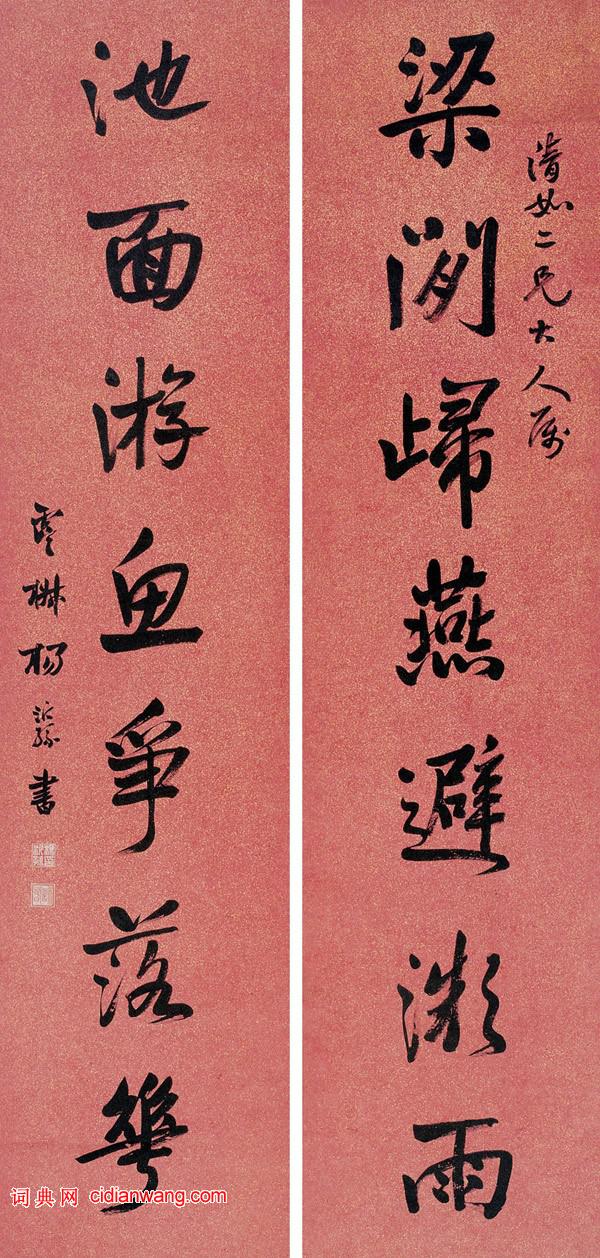 清如二兄大人属
梁閒歸燕避溦雨
池面游魚爭落華
楊沂孫書
词典网 cidianwang.com